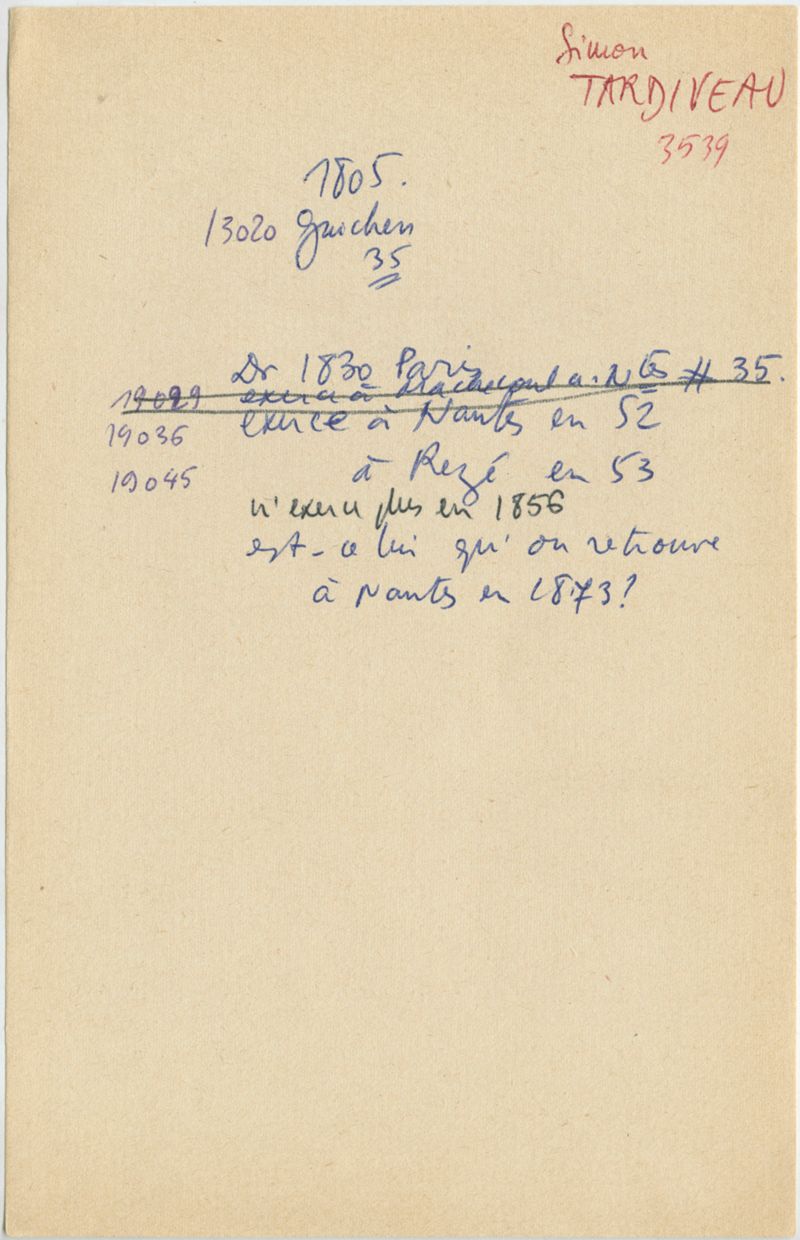 Simon
TARDIVEAU
3539
1805.
13020 Guichen
35
Dr 1830 Paris
19029 exerce à Machecoul a. Ntes # 35.
19036 exerce à Nantes en 52
19045 à Rezé en 53
n'exerce plus en 1856
est-ce lui qu'on retrouve
à Nantes en 1873?